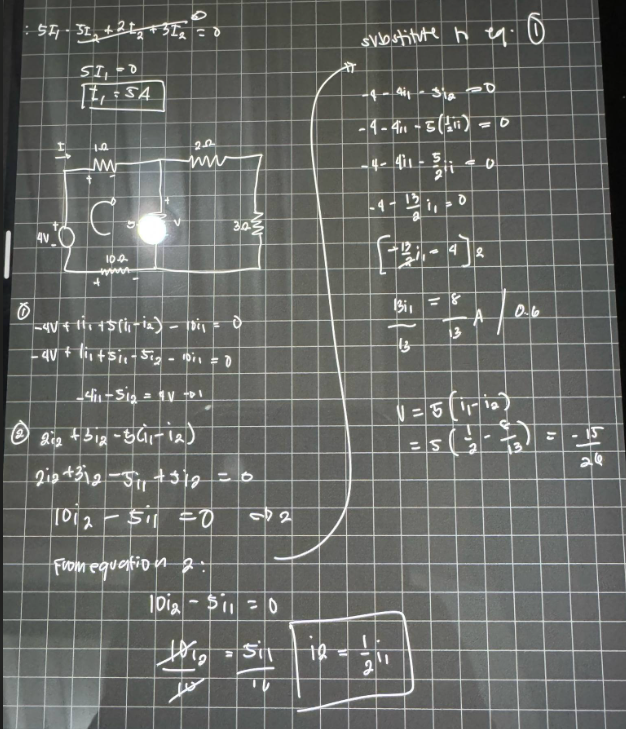 : 5I₁ - 5I₂ + 2I₂ + 3I₂ = 0
0
5I₁ = 0
I₁ = 5A
I
1Ω
2Ω
+ -
+
4V
+
-
V
3Ω
10Ω
+ -
①
-4V + 1i₁ + 5(i₁-i₂) - 10i₁ = 0
-4V + 1i₁ + 5i₁ - 5i₂ - 10i₁ = 0
-4i₁ - 5i₂ = 4V → 1
② 2i₂ + 3i₂ - 5(i₁-i₂)
2i₂ + 3i₂ - 5i₁ + 5i₂ = 0
10i₂ - 5i₁ = 0 → 2
From equation 2:
10i₂ - 5i₁ = 0
10i₂/10 = 5i₁/10
i2 = 1/2 i₁
substitute n eq. ①
-4 - 4i₁ - 5i₂ = 0
-4 - 4i₁ - 5(1/2 i₁) = 0
-4 - 4i₁ - 5/2 i₁ = 0
-4 - 13/2 i₁ = 0
[-13/2 i₁ = 4] 2
13i₁/13 = 8/13 A / 0.6
V = 5(i₁-i₂)
= 5(1/2 - 8/13) = -15/26